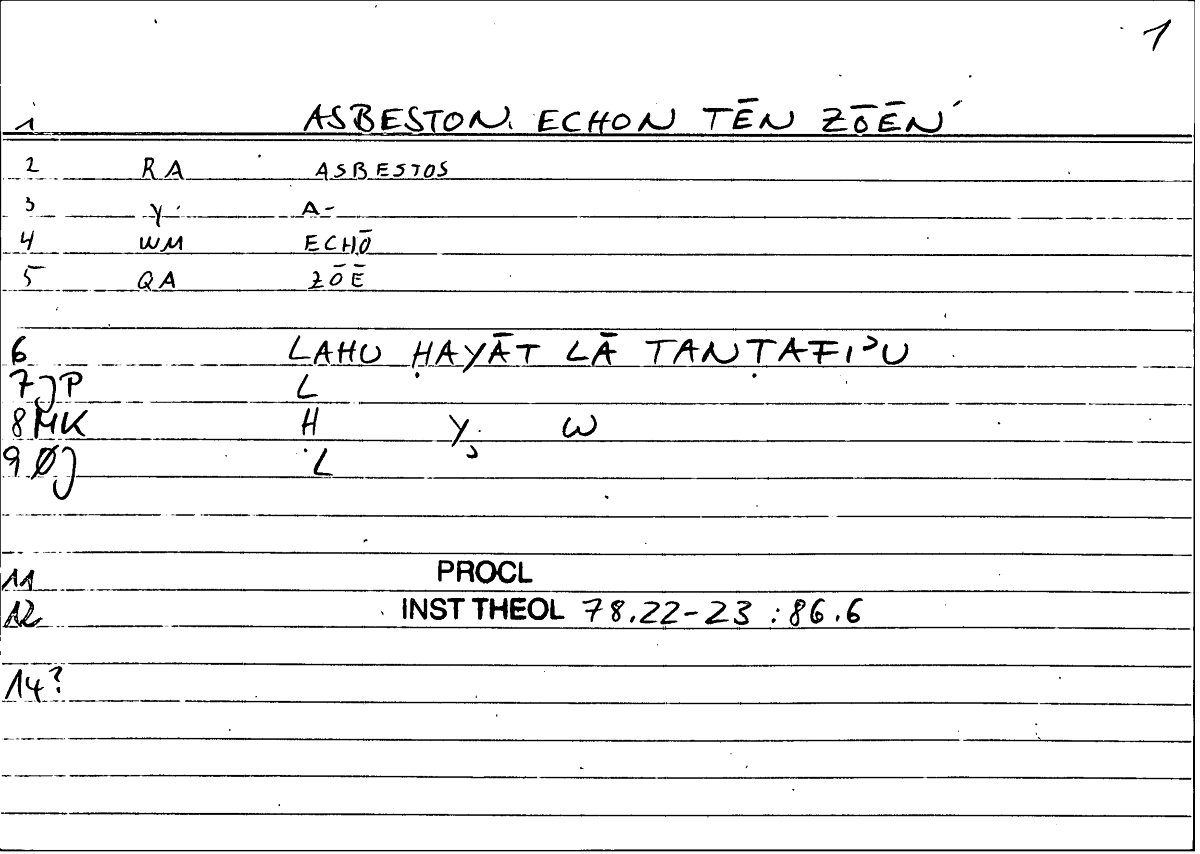 1
1 ASBESTON ECHON TĒN ZŌĒN
2 RA ASBESTOS
3 Y A-
4 WM ECHŌ
5 QA ZŌĒ
6 LAHU ḤAYĀT LĀ TANṬAFIʾU
7 JP L
8 MK H Y, W
9 ØJ L
11 PROCL
12 INST THEOL 78.22-23 : 86.6
14?